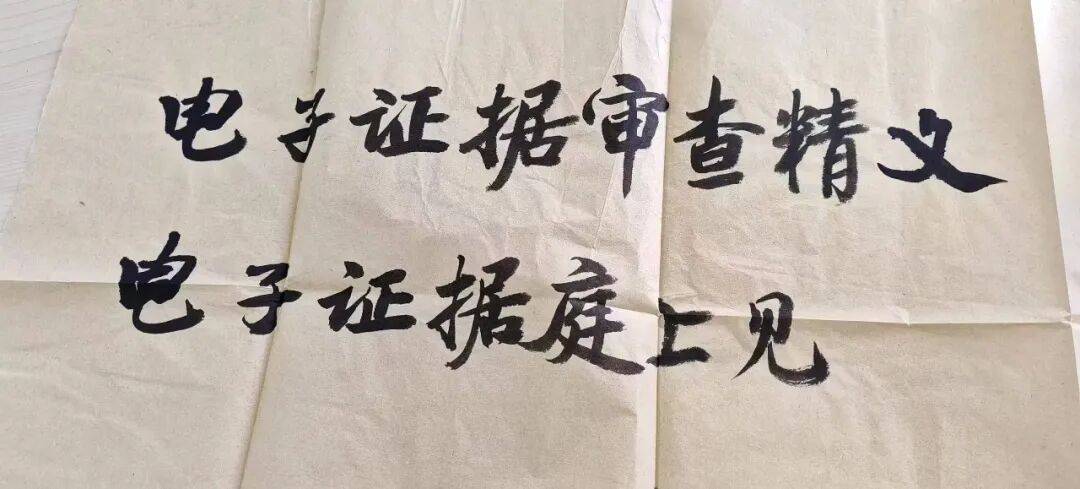 电子证据审查精义
电子证据庭上见